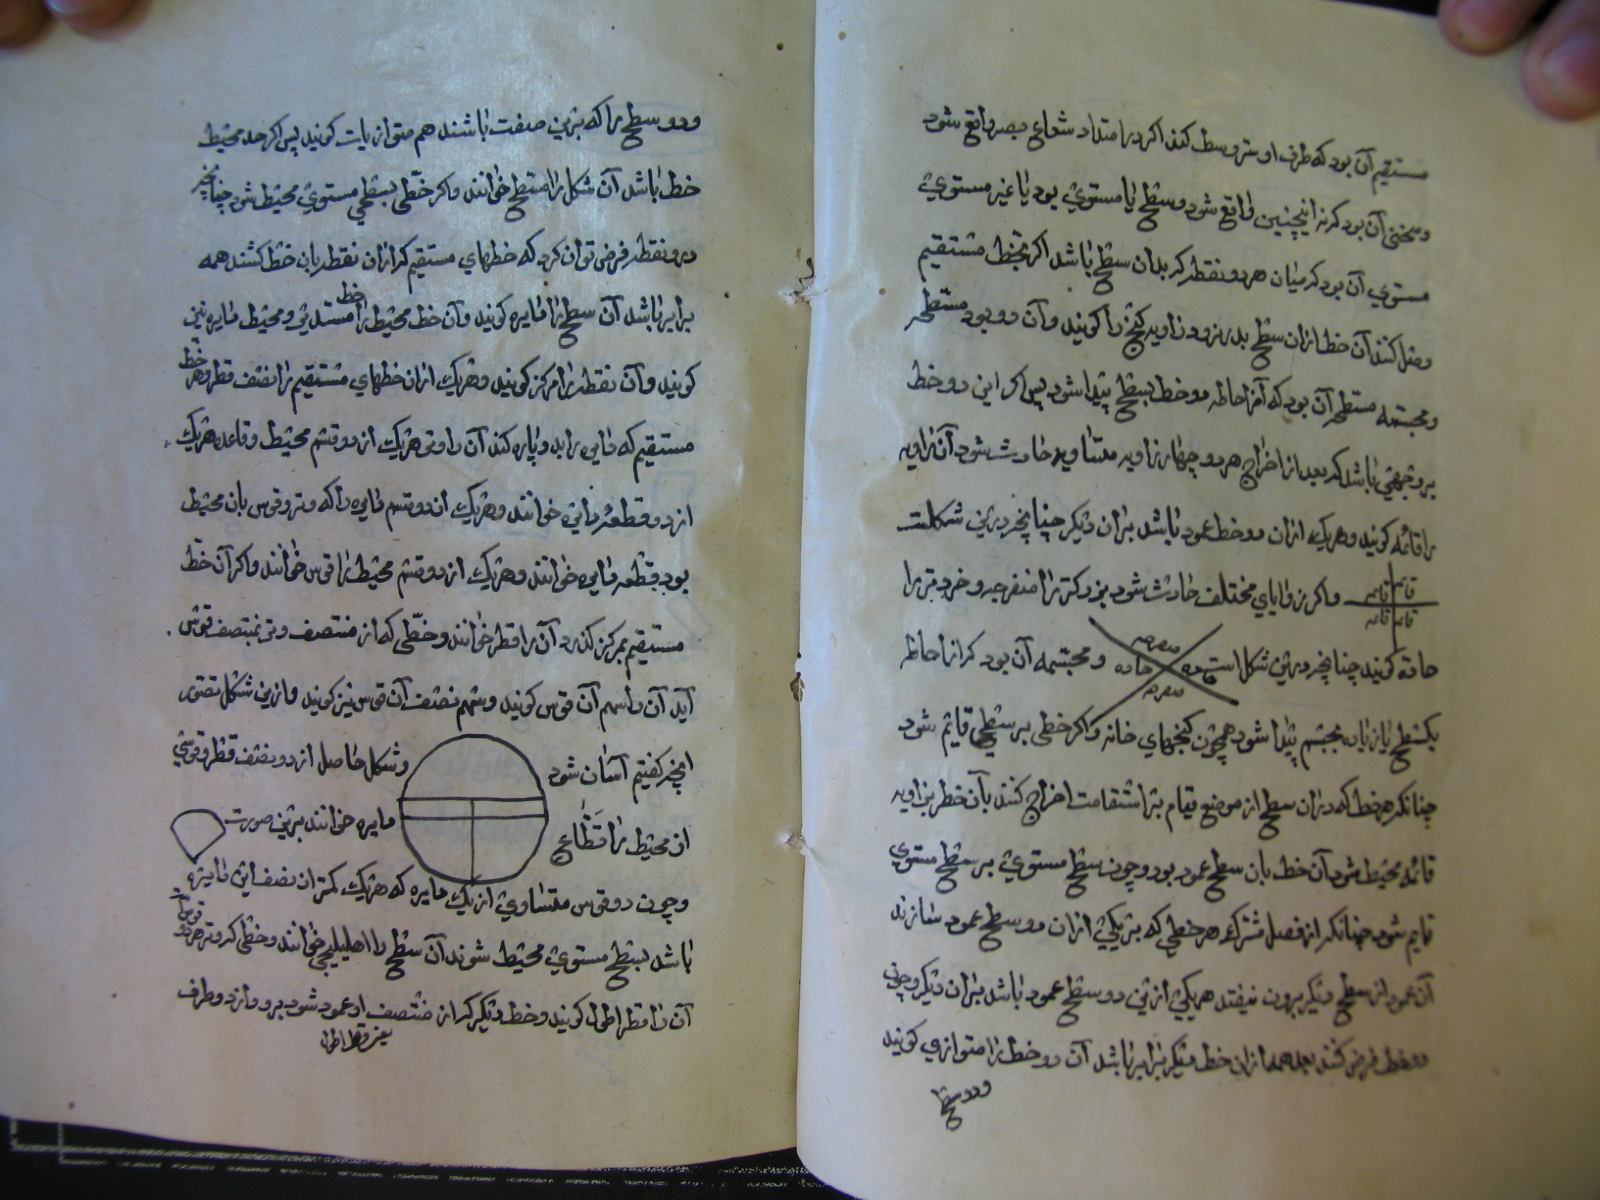 مستقیم آن بود که طرف او ستر وسط کند اکر در امتداد شعاع بصر واقع شود
و منحنی آن بود کرنه اینچنین واقع شود و سطح یا مستوی بود یا غیر مستوی
مستوی آن بود که میان هر دو نقطه که بدان سطح باشد اکر بخط مستقیم
وصل کنند آن خط ازان سطح بدر نرود زاویه کنج را کویند و آن دو بود مسطحه
و مجسمه مسطحه آن بود که از احاطه دو خط بسطح پیدا شود پس اکر این دو خط
بر وجهی باشد که بعد از اخراج هر دو چهار زاویه متساویه حادث شود آن زاویه
را قائمه کویند و هریک ازان دو خط عمود باشد بران دیکر چنانچه درین شکلست
قائمه قائمه
قائمه قائمه
و اکر زوایای مختلف حادث شود بزرکتر را منفرجه و خردتر را
حاده کویند چنانچه درین شکل است
منفرجه
حاده حاده
منفرجه
و مجسمه آن بود که از احاطه
یکسطح یا زیاده بجسم پیدا شود همچون کنجهای خانه و اکر خطی بر سطحی قایم شود
چنانکه هر خط که دران سطح از موضع قیام بر استقامت اخراج کنند بآن خط بزاویه
قائمه محیط شود آن خط بان سطح عمود بود و چون سطح مستوی بر سطح مستوی
قایم شود چنانکه از فصل مشترک هر خطی که بر یکی ازان دو سطح عمود سازند
آن عمود از سطح دیکر برون نیفتد هر یکی ازین دو سطح عمود باشد بران دیکر و چون
دو خط فرض کنند بعد همه ازان خط دیکر برابر باشد آن دو خط را متوازی کویند
و دو سطح
و دو سطح را که برین صفت باشند هم متوازیات کویند پس اکر حد محیط
خط باشد آن شکل را مسطح خوانند و اکر خطی بسطحی مستوی محیط شود چنانچه
درو نقطه فرض توان کرد که خطهای مستقیم که ازان نقطه بان خط کشند همه
برابر باشد آن سطح را دایره کویند و آن خط محیط را خط مستدیر و محیط دایره نیز
کویند و آن نقطه را مرکز کویند و هریک ازان خطهای مستقیم را نصف قطر و هر خط
مستقیم که دایره را بدو پاره کند آن را وتر هریک از دو قسم محیط و قاعده هریک
از دو قطعه دایره خوانند و هریک از دو قسم دایره را که وتر و قوس بان محیط
بود قطعه دایره خوانند و هریک از دو قسم محیط را قوس خوانند و اکر آن خط
مستقیم بمرکز کذرد آن را قطر خوانند و خطی که از منتصف وتر بمنتصف قوس
آید آن را سهم آن قوس کویند و سهم نصف آن قوس نیز کویند و ازین شکل تصور
انچه کفتیم آسان شود
و شکل حاصل از دو نصف قطر و قوسی
از محیط را قطاع
دایره خوانند برین صورت
و چون دو قوس متساوی از یک دایره که هریک کمتر از نصف این دایره
باشد بسطح مستوی محیط شوند آن سطح را اهلیلیجی خوانند و خطی که وتر هر دو قوس است
آن را قطر اطول کویند و خط دیکر که از منتصف او عمود شود برو و از دو طرف
یعنی قطر اطول